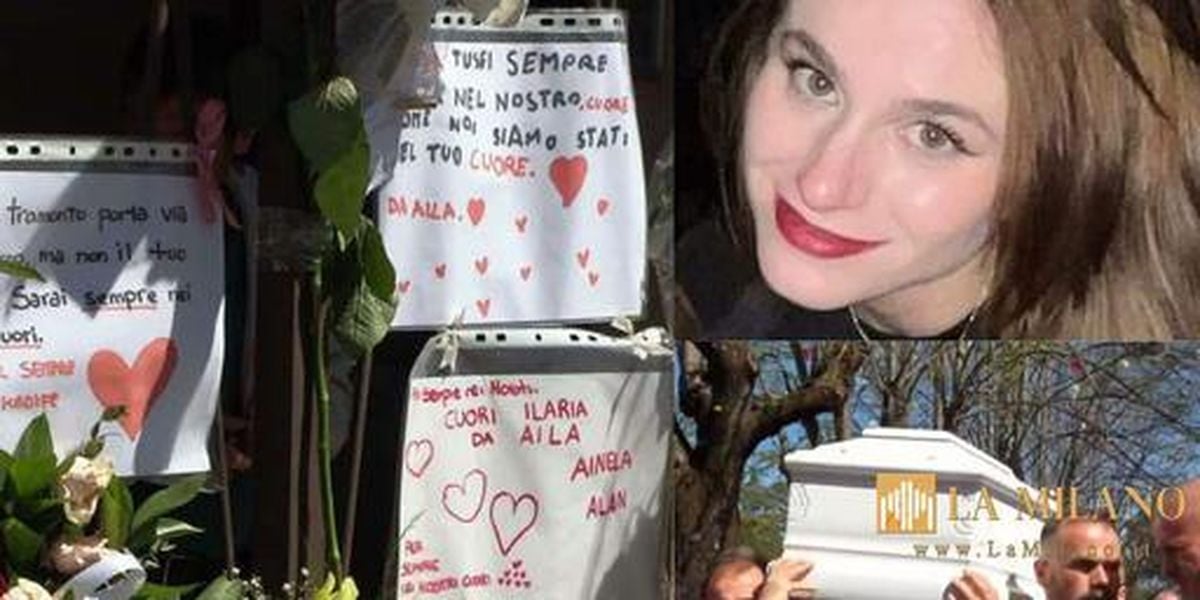 tramonto porta via
ma non il tuo
Sarai sempre nei
uori.
SEMPRE
TU SEI SEMPRE
NEL NOSTRO CUORE
OME NOI SIAMO STATI
EL TUO CUORE.
DA AILA.
CUORI ILARIA
DA AILA
AINELA
ALAN
PER
SEMPRE
NEL NOSTRO CUORE
LA MILANO